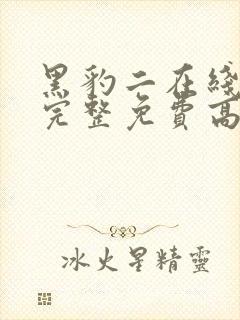 黑豹二在綫
完整免費高
冰火星精靈